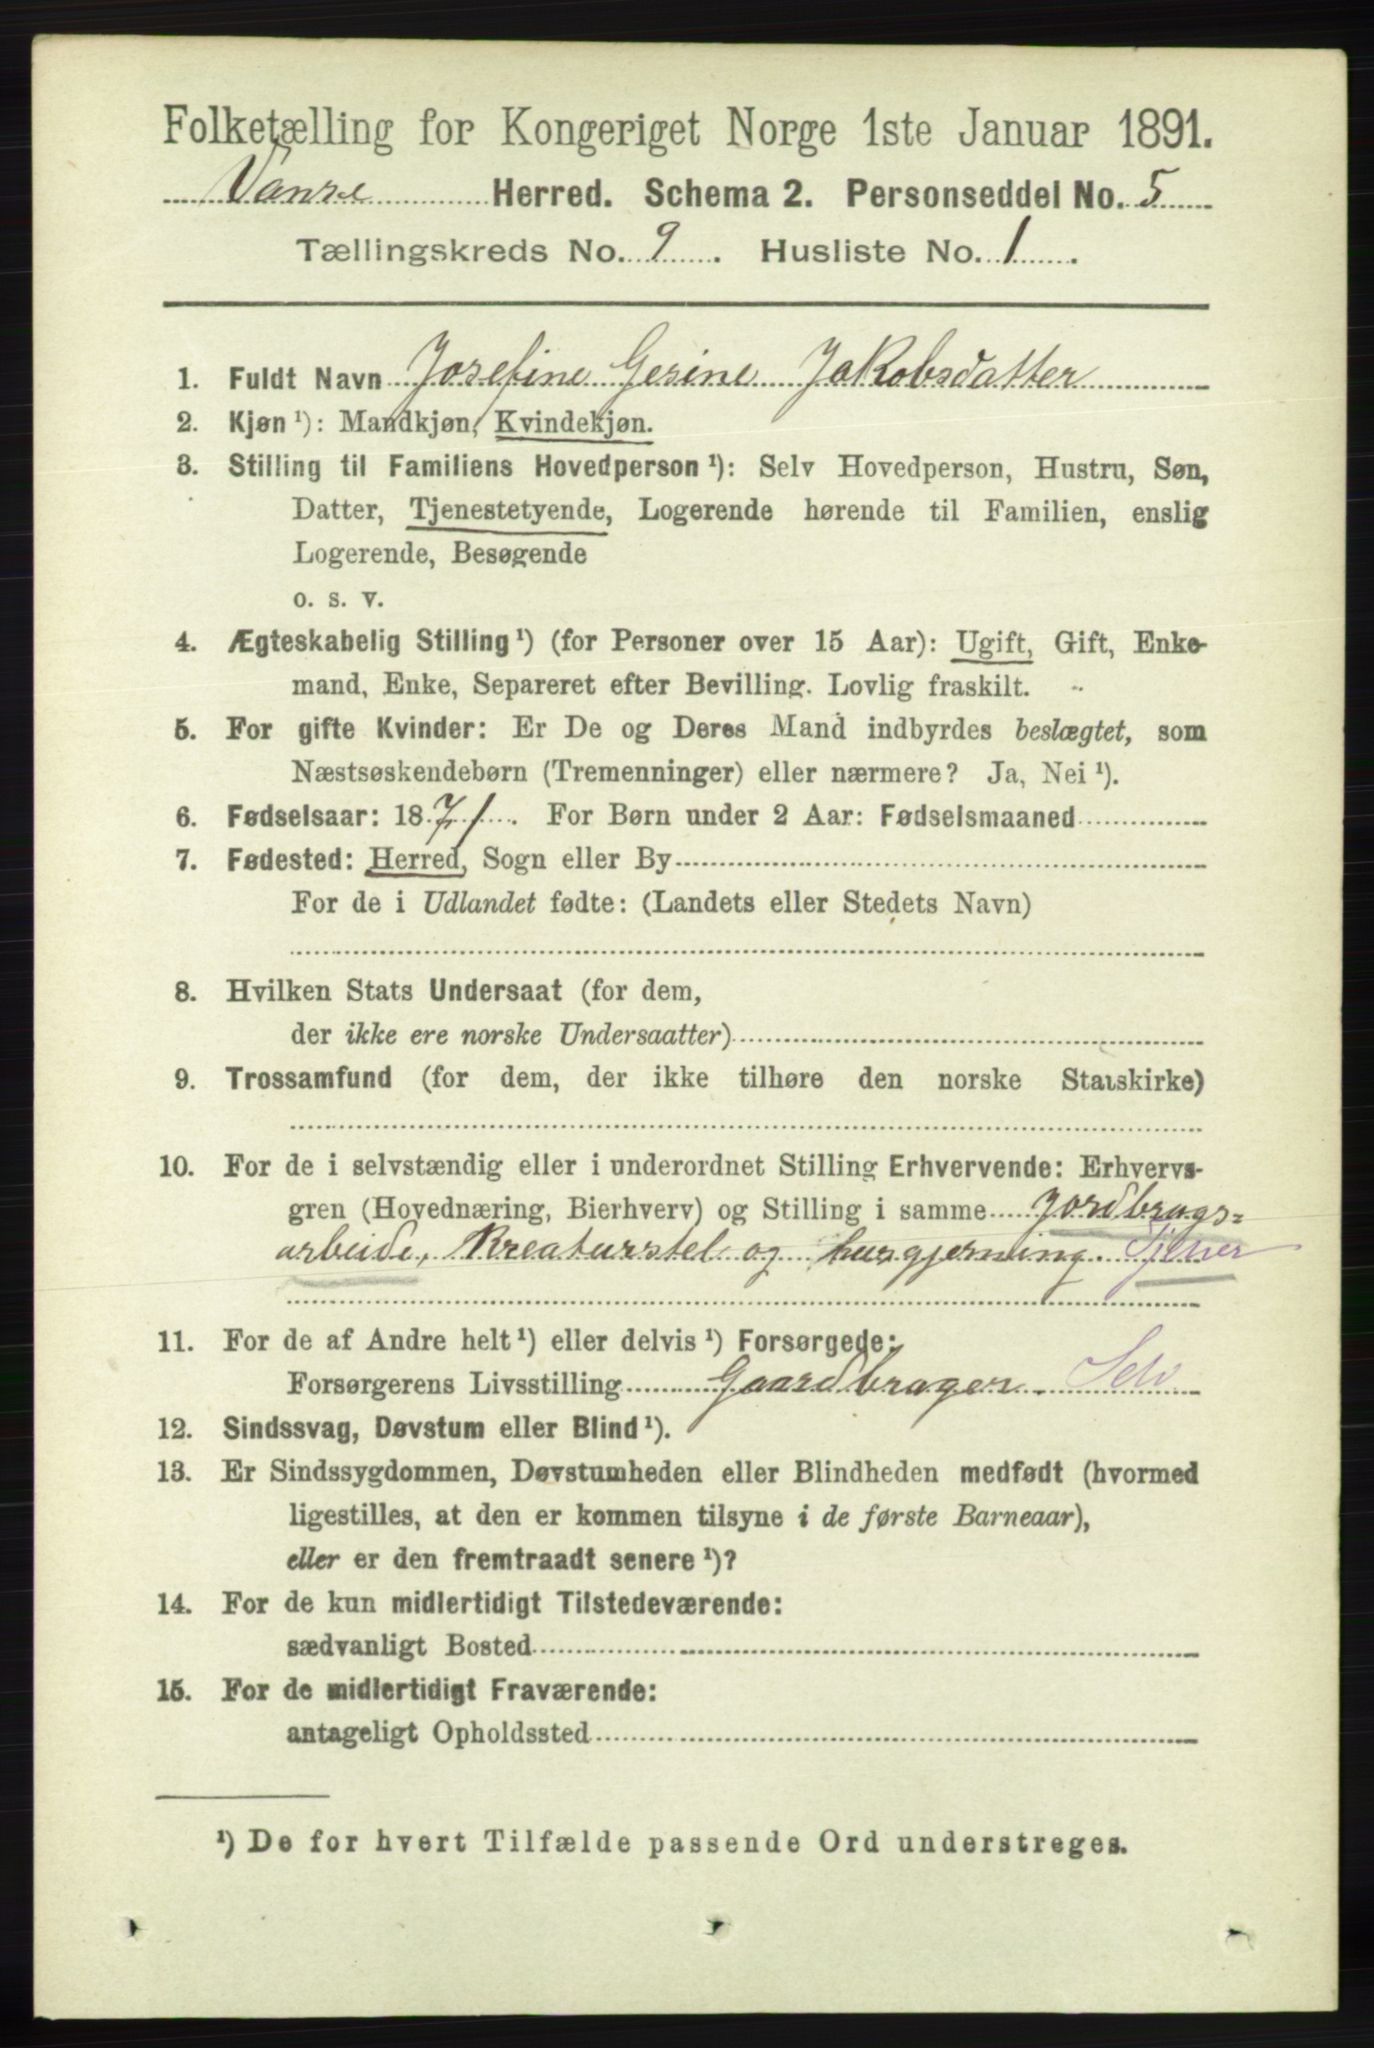 Folketælling for Kongeriget Norge 1ste Januar 1891.
Vanse Herred. Schema 2. Personseddel No. 5
Tællingskreds No. 9. Husliste No. 1.
1. Fuldt Navn Josefine Gesine Jakobsdatter
2. Kjøn ¹): Mandkjøn, Kvindekjøn.
3. Stilling til Familiens Hovedperson ¹): Selv Hovedperson, Hustru, Søn,
Datter, Tjenestetyende, Logerende hørende til Familien, enslig
Logerende, Besøgende
o. s. v.
4. Ægteskabelig Stilling ¹) (for Personer over 15 Aar): Ugift, Gift, Enke-
mand, Enke, Separeret efter Bevilling. Lovlig fraskilt.
5. For gifte Kvinder: Er De og Deres Mand indbyrdes beslægtet, som
Næstsøskendebørn (Tremenninger) eller nærmere? Ja, Nei ¹).
6. Fødselsaar: 1871. For Børn under 2 Aar: Fødselsmaaned
7. Fødested: Herred, Sogn eller By
For de i Udlandet fødte: (Landets eller Stedets Navn)
8. Hvilken Stats Undersaat (for dem,
der ikke ere norske Undersaatter)
9. Trossamfund (for dem, der ikke tilhøre den norske Statskirke)
10. For de i selvstændig eller i underordnet Stilling Erhvervende: Erhvervs-
gren (Hovednæring, Bierhverv) og Stilling i samme Jordbrugs=
arbeide, Kreaturstel og husgjerning. Tjener
11. For de af Andre helt ¹) eller delvis ¹) Forsørgede:
Forsørgerens Livsstilling Gaardbruger. Selv
12. Sindssvag, Døvstum eller Blind ¹).
13. Er Sindssygdommen, Døvstumheden eller Blindheden medfødt (hvormed
ligestilles, at den er kommen tilsyne i de første Barneaar),
eller er den fremtraadt senere ¹)?
14. For de kun midlertidigt Tilstedeværende:
sædvanligt Bosted
15. For de midlertidigt Fraværende:
antageligt Opholdssted
¹) De for hvert Tilfælde passende Ord understreges.